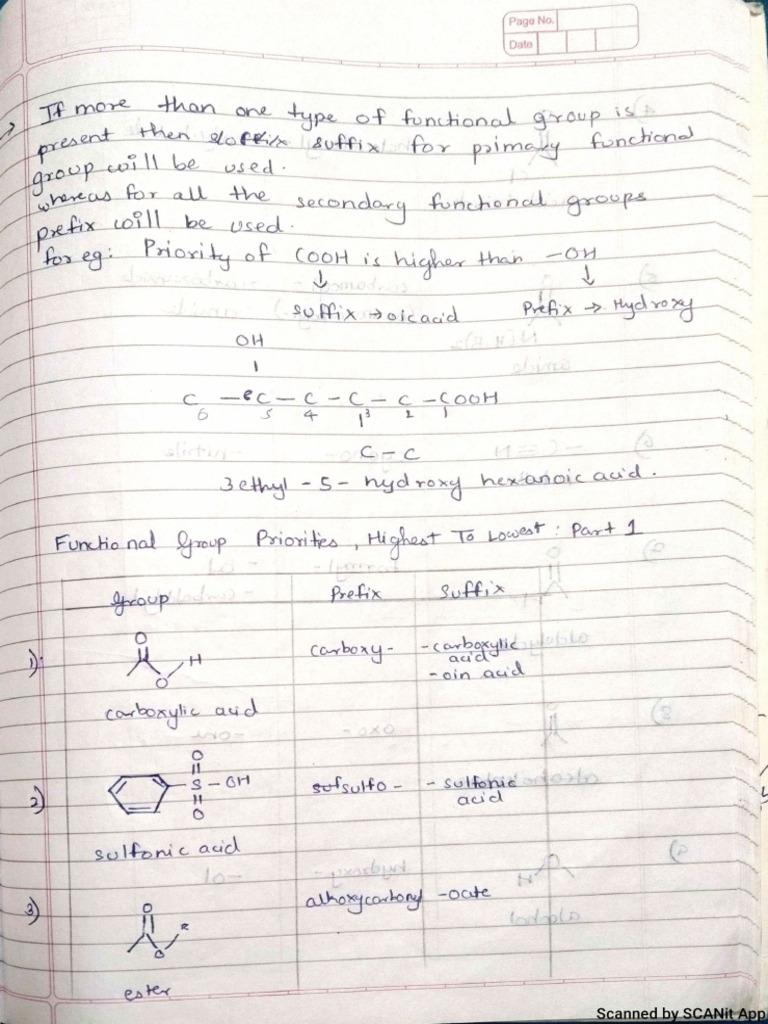 Page No.
Date
If more than one type of functional group is
present then suffix for primary functional
group will be used.
whereas for all the secondary functional groups
prefix will be used.
for eg: Priority of COOH is higher than -OH
↓ ↓
suffix → oic acid Prefix → Hydroxy
OH
C - C - C - C - C - COOH
6 5 4 3 2 1
C - C
3 ethyl - 5 - hydroxy hexanoic acid.
Functional Group Priorities, Highest To Lowest: Part 1
Group Prefix Suffix
1) O O H carboxy- -carboxylic acid
-oin acid
carboxylic acid
2) O S - OH O sulfo- - sulfonic acid
sulfonic acid
3) O O R alkoxycarbonyl -oate
ester
Scanned by SCANit App